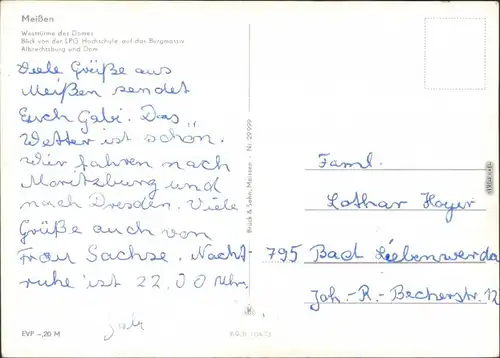 Meißen
Westtürme des Domes
Blick von der LPG Hochschule auf das Burgmassiv
Albrechtsburg und Dom
Viele Grüße aus
Meißen sendet
Euch Gabi. Das
Wetter ist schön.
Wir fahren nach
Moritzburg und
nach Dresden. Viele
Grüße auch von
Frau Sachse. Nacht-
ruhe ist 22.00 Uhr.
EVP –,20 M
Brück & Sohn, Meissen · Nr. 29 999
Faml.
Lothar Hoyer
795 Bad Liebenwerda
Joh.-R.-Becherstr. 12